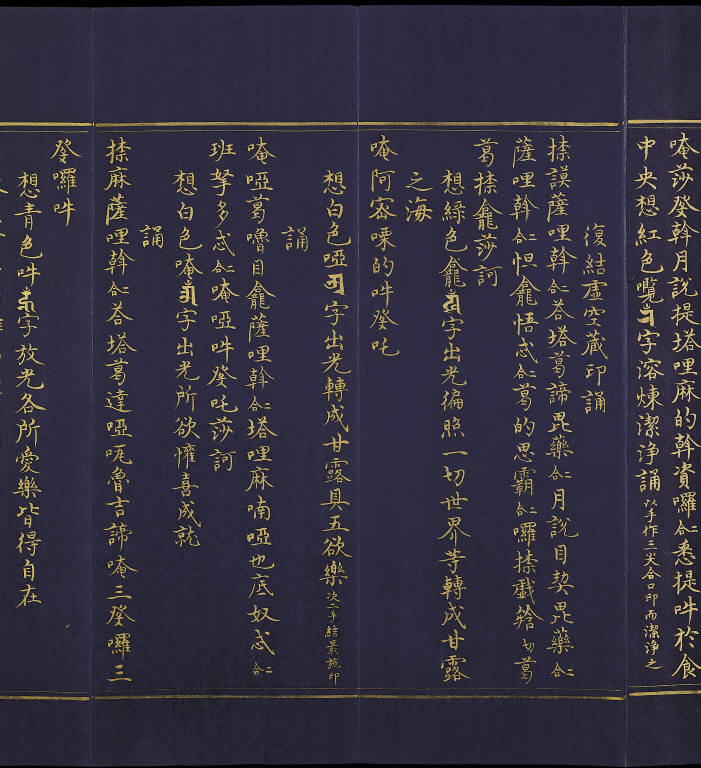 唵莎癹斡月說提塔哩麻的斡資囉二合悉提吽於食
中央想紅色囕字溶煉潔淨誦以手作三尖合口印而潔淨之
復結虛空藏印誦
捺謨薩哩斡二合荅塔葛諦毘藥二合月說目契毘藥二合
薩哩斡二合怛龕悟忒二合葛的思霸二合囉捺戲㘓切葛
葛捺龕莎訶
想綠色龕字出光徧照一切世界等轉成甘露
之海
唵阿密㗚的吽癹吒
想白色啞字出光轉成甘露具五欲樂次二手結最施印
誦
唵啞葛嚕目龕薩哩斡二合塔哩麻喃啞也底奴忒二合
班拏多忒二合唵啞吽癹吒莎訶
想白色唵字出光所欲懽喜成就
誦
捺麻薩哩斡二合荅塔葛達啞嚩魯吉諦唵三癹囉三
癹囉吽
想青色吽字放光各所愛樂皆得自在